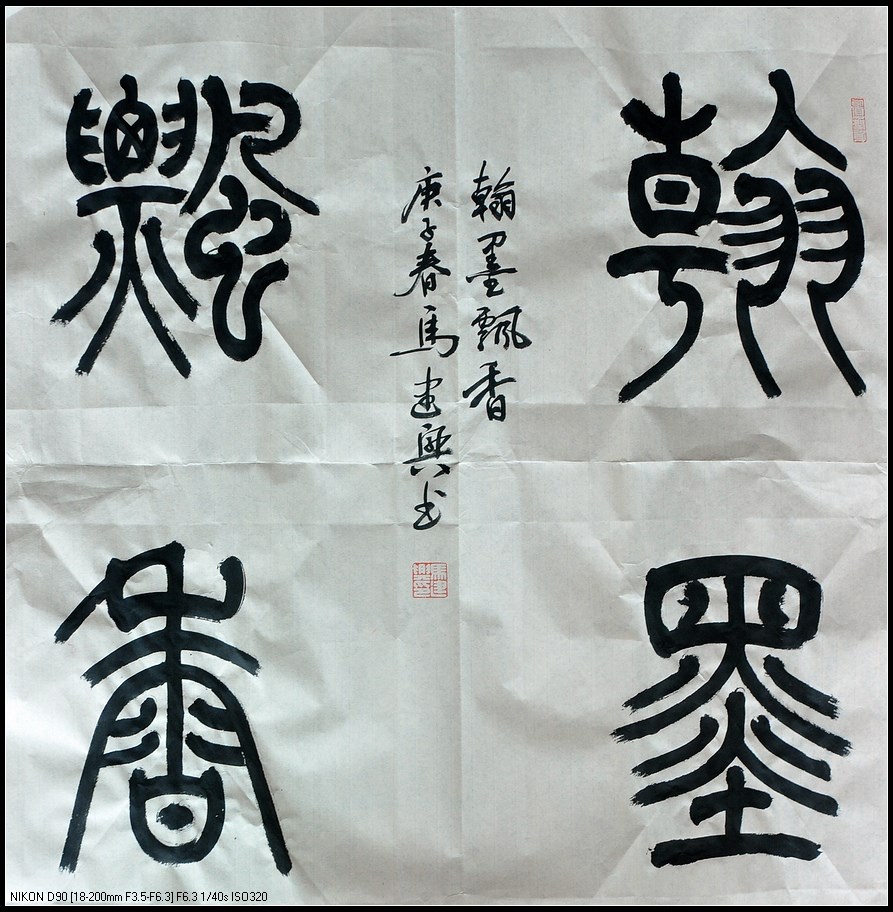 翰墨
飘香
翰墨飘香
庚子春馬建興书
NIKON D90 [18-200mm F3.5-F6.3] F6.3 1/40s ISO320